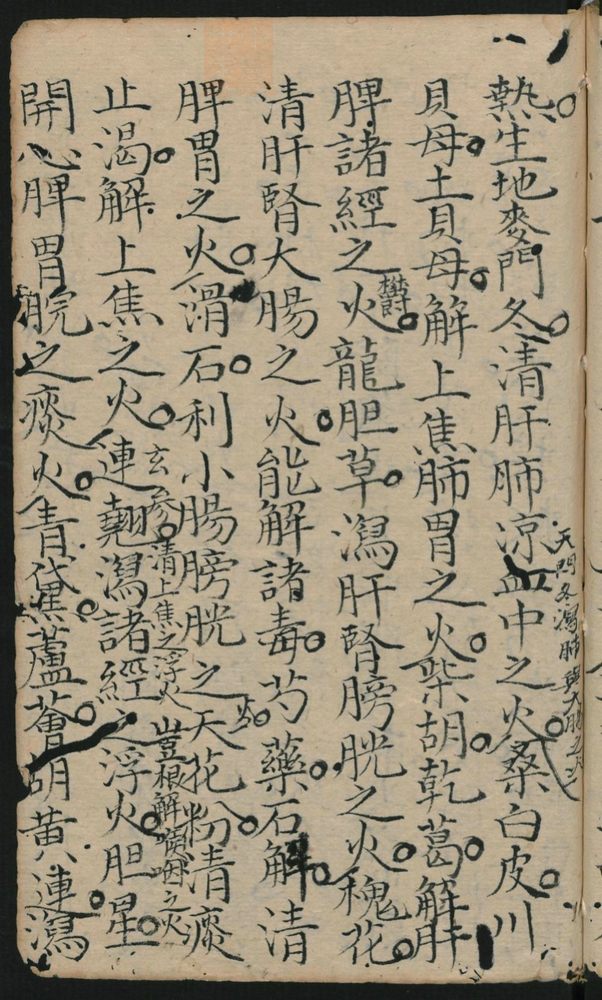 熱生地麥門冬清肝肺涼血中之火桑白皮川
天門冬瀉肺與大腸之火
貝母土貝母解上焦肺胃之火柴胡乾葛解肝
脾諸經之火欝龍胆草瀉肝腎膀胱之火槐花
清肝腎大腸之火能解諸毒芍藥石解清
脾胃之火滑石利小腸膀胱之火天花粉清痰
止渴解上焦之火連翹瀉諸經之浮火胆星
玄參清上焦之浮火 山豆根解咽之火
開心脾胃脘之痰火青黛蘆薈胡黄連瀉